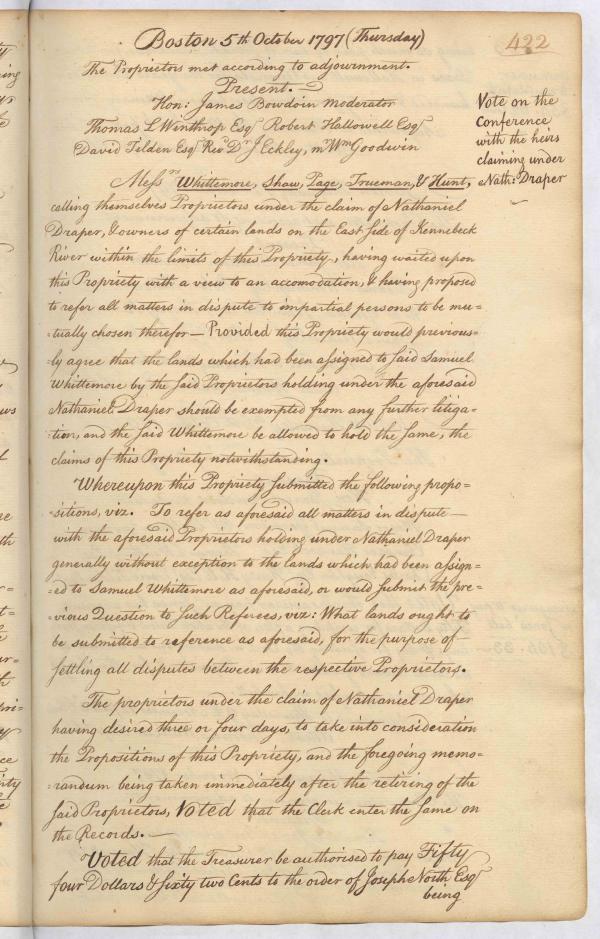 Boston 5th October 1797 (Thursday)
422
The Proprietors met according to adjournment.
Present.
Hon: James Bowdoin Moderator
Thomas L Winthrop Esqr Robert Hallowell Esqr
David Tilden Esqr Revd Dr J Eckley, mr Wm Goodwin
Vote on the
Conference
with the heirs
claiming under
Nath: Draper
Messrs Whittemore, Shaw, Page, Trueman, & Hunt,
calling themselves Proprietors under the claim of Nathaniel
Draper, & owners of certain lands on the East Side of Kennebeck
River within the limits of this Propriety, having waited upon
this Propriety with a view to an accomodation, & having proposed
to refer all matters in dispute to impartial persons to be mu=
=tually chosen therefor — Provided this Propriety would previous=
=ly agree that the lands which had been assigned to said Samuel
Whittemore by the said Proprietors holding under the aforesaid
Nathaniel Draper should be exempted from any further litiga=
=tion, and the said Whittemore be allowed to hold the same, the
claims of this Propriety notwithstanding.
Whereupon this Propriety submitted the following propo=
=sitions, viz. To refer as aforesaid all matters in dispute —
with the aforesaid Proprietors holding under Nathaniel Draper
generally without exception to the lands which had been assign=
=ed to Samuel Whittemore as aforesaid, or would submit the pre=
=vious Question to such Referees, viz: What lands ought to
be submitted to reference as aforesaid, for the purpose of
settling all disputes between the respective Proprietors.
The proprietors under the claim of Nathaniel Draper
having desired three or four days, to take into consideration
the Propositions of this Propriety, and the foregoing memo=
=randum being taken immediately after the retiring of the
said Proprietors, Voted that the Clerk enter the same on
the Records. —
Voted that the Treasurer be authorised to pay Fifty
four Dollars & Sixty two Cents to the order of Joseph North Esqr
being